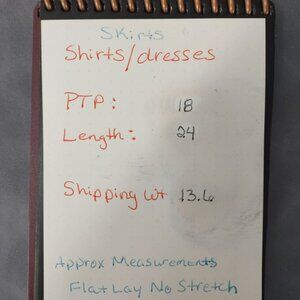 Skirts
Shirts/dresses
PTP: 18
Length: 24
Shipping Wt 13.6
Approx Measurements
Flat Lay No Stretch